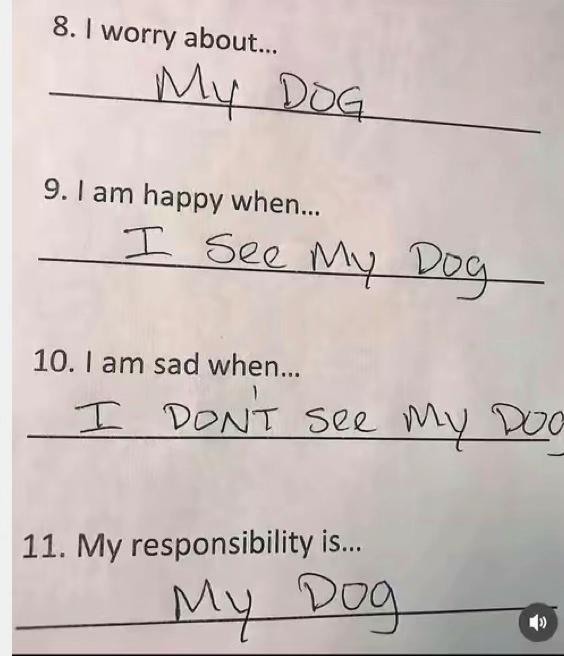 8. I worry about...
My DOG
9. I am happy when...
I See My Dog
10. I am sad when...
I DON'T See My DOG
11. My responsibility is...
My Dog